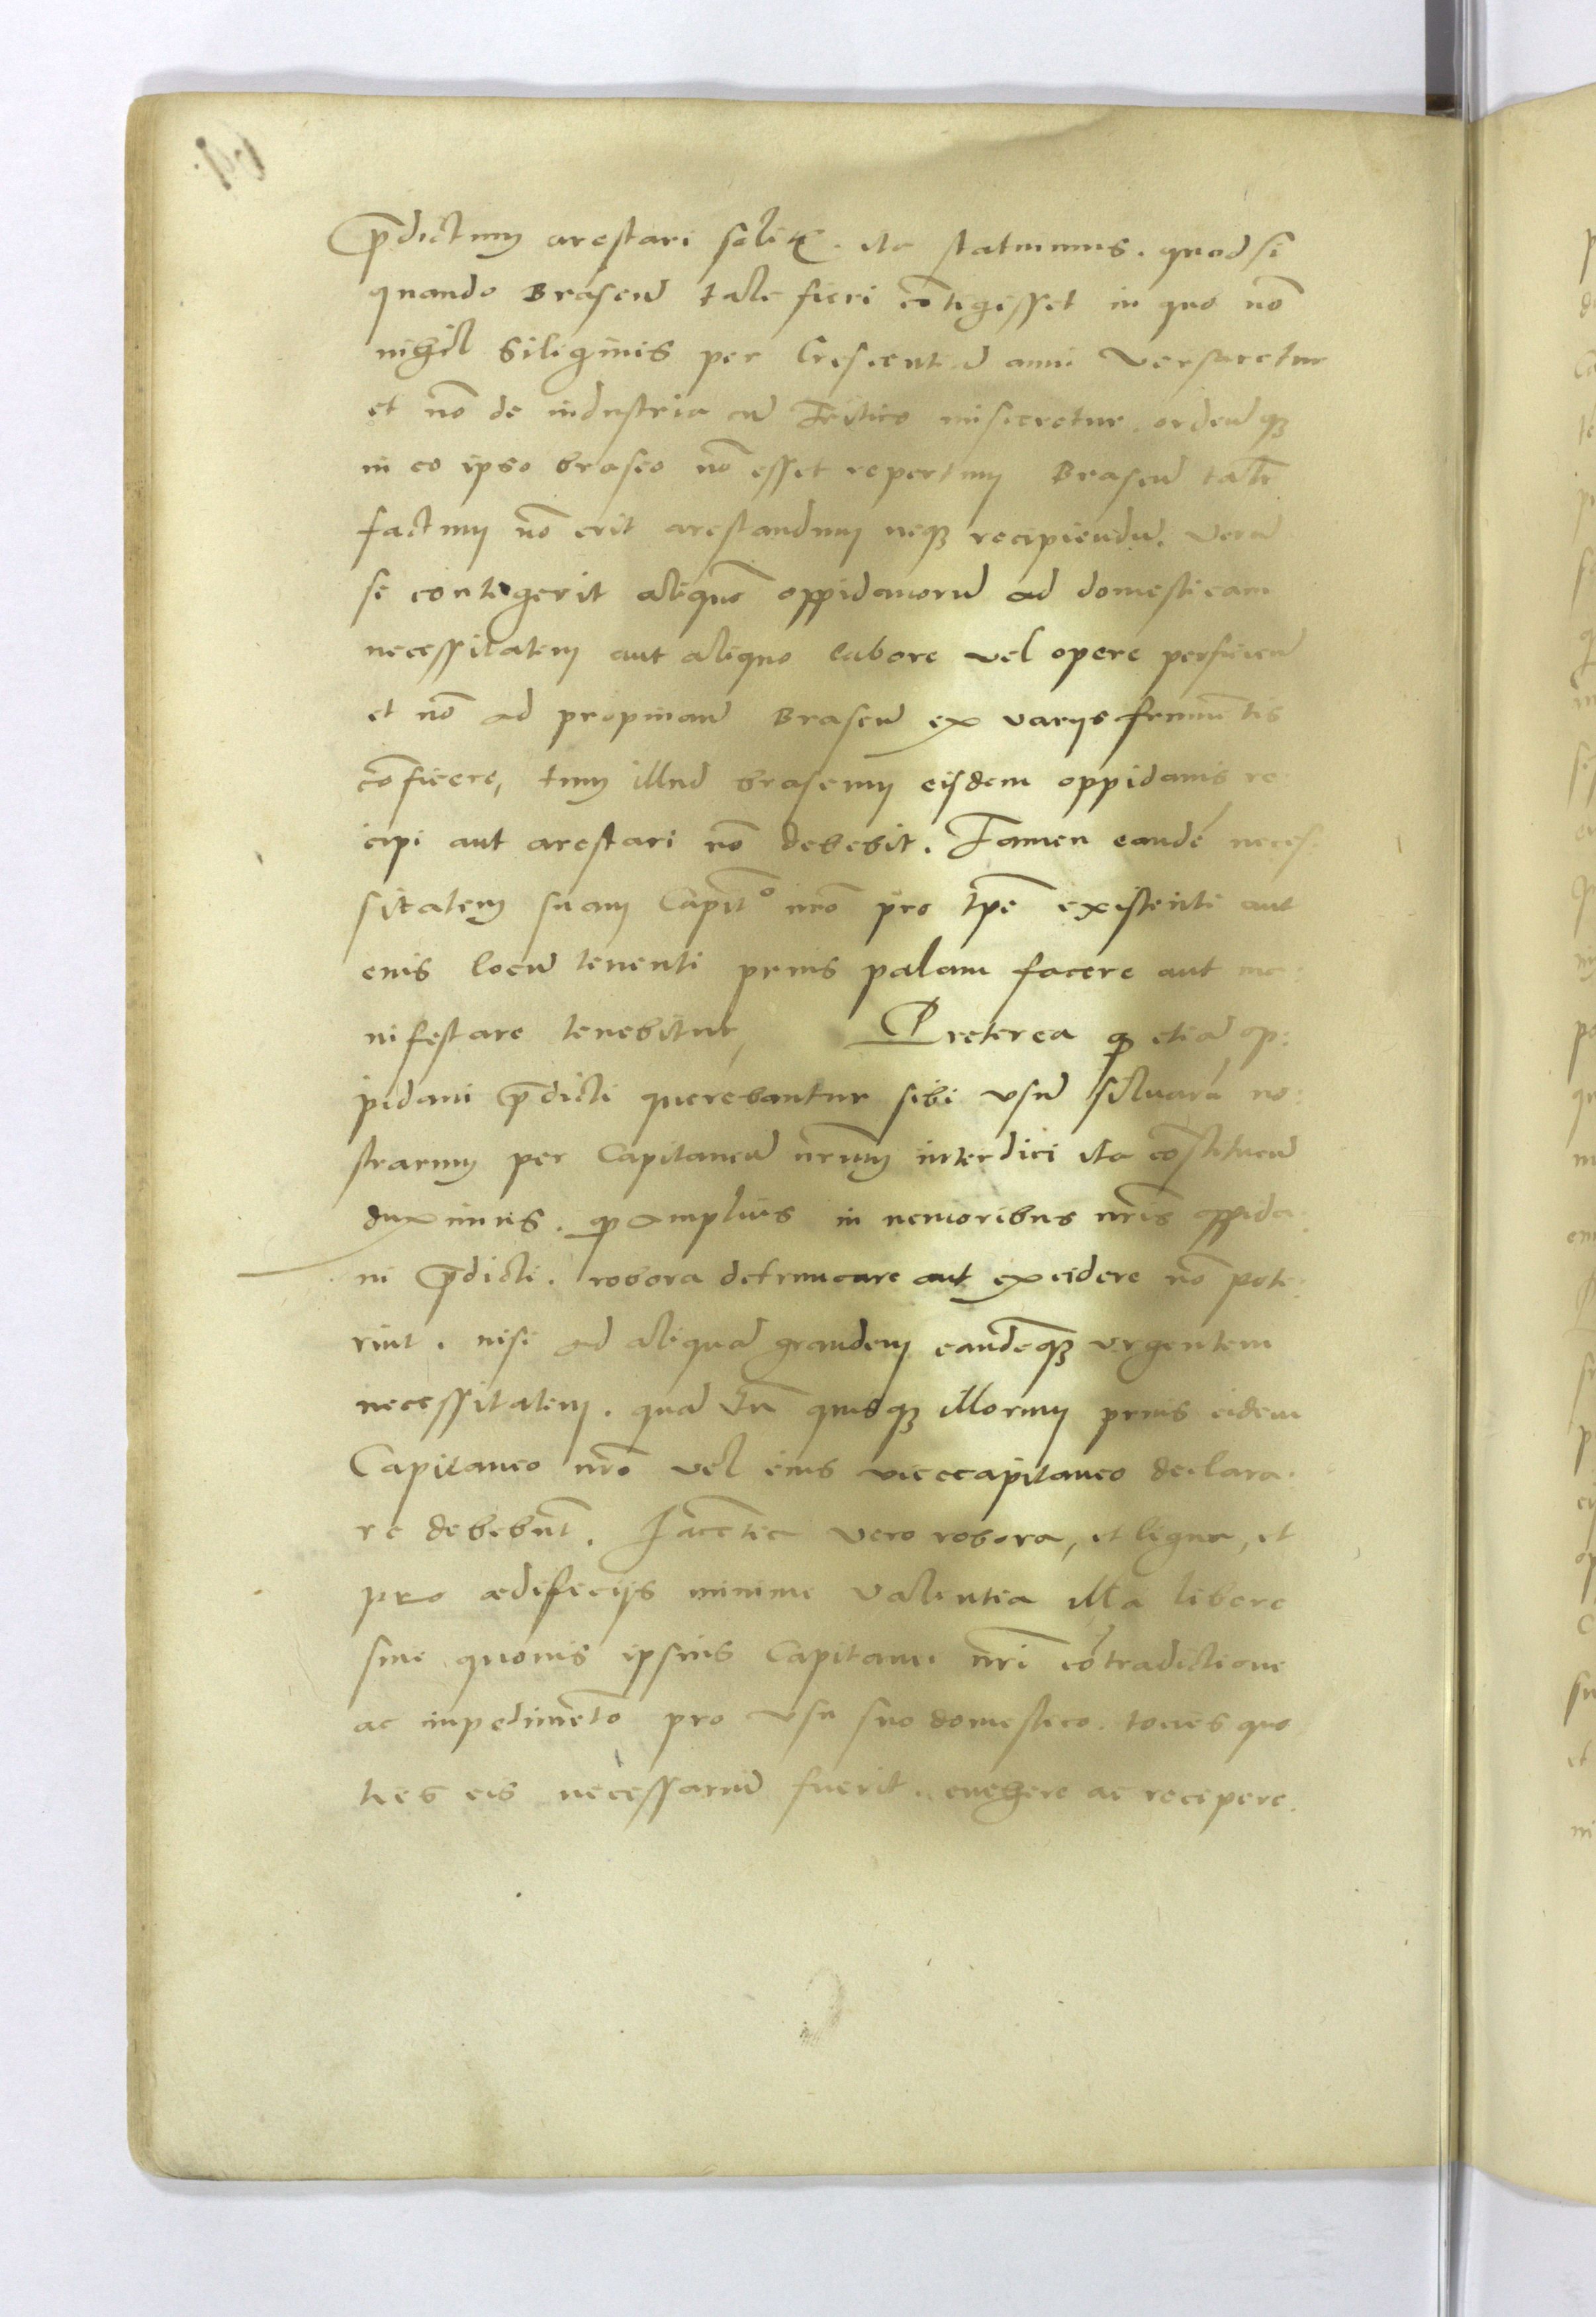 p̄dictum arestari solitū. ita statuimus. quod si
quando Braseū tale fieri cōtigisset in quo nō
nihil Siliginis per Crescentiā anni versaretur
et nō de industria cū Tritico misceretur. ordeūqȝ
in eo ipso braseo nō esset repertum Braseū tale
factum nō erit arestandum neqȝ recipiendū. Verū
si contigerit aliquē oppidanorū ad domesticam
necessitatem aut aliquo labore vel opere perficien̄
et nō ad propinan̄ Braseū ex varijs frumētis
cōficere, tum illud braseum eisdem oppidanis re
cipi aut arestari nō debebit. Tamen eandē neces:
sitatem suam Capitᵒ nr̄o pro tp̄e existenti aut
eius locū tenenti prius palam facere aut ma:
nifestare tenebitur, Preterea qꝫ etiā op:
pidani p̄dicti querebantur sibi vsū siluarū no:
strarum per Capitaneū nr̄um interdici ita cōstituen̄
duximus. qꝫ amplius in nemoribus nr̄is oppida:
ni p̄dicti. robora detruncare aut excidere nō pote:
rint. nisi ad aliquā grandem eandēqȝ vrgentem
necessitatem. quā tn̄ quisqȝ illorum prius eidem
Capitaneo nr̄o vel eius vicecapitaneo declara:
re debebūt. Iacētia vero robora, et ligna, et
pro ædificijs minime valentia illa libere
sine quouis ipsius Capitanei nr̄i cōtradictione
ac impedimēto pro vsu suo domestico. tocies quo
ties eis necessariū fuerit. euehere ac recipere.